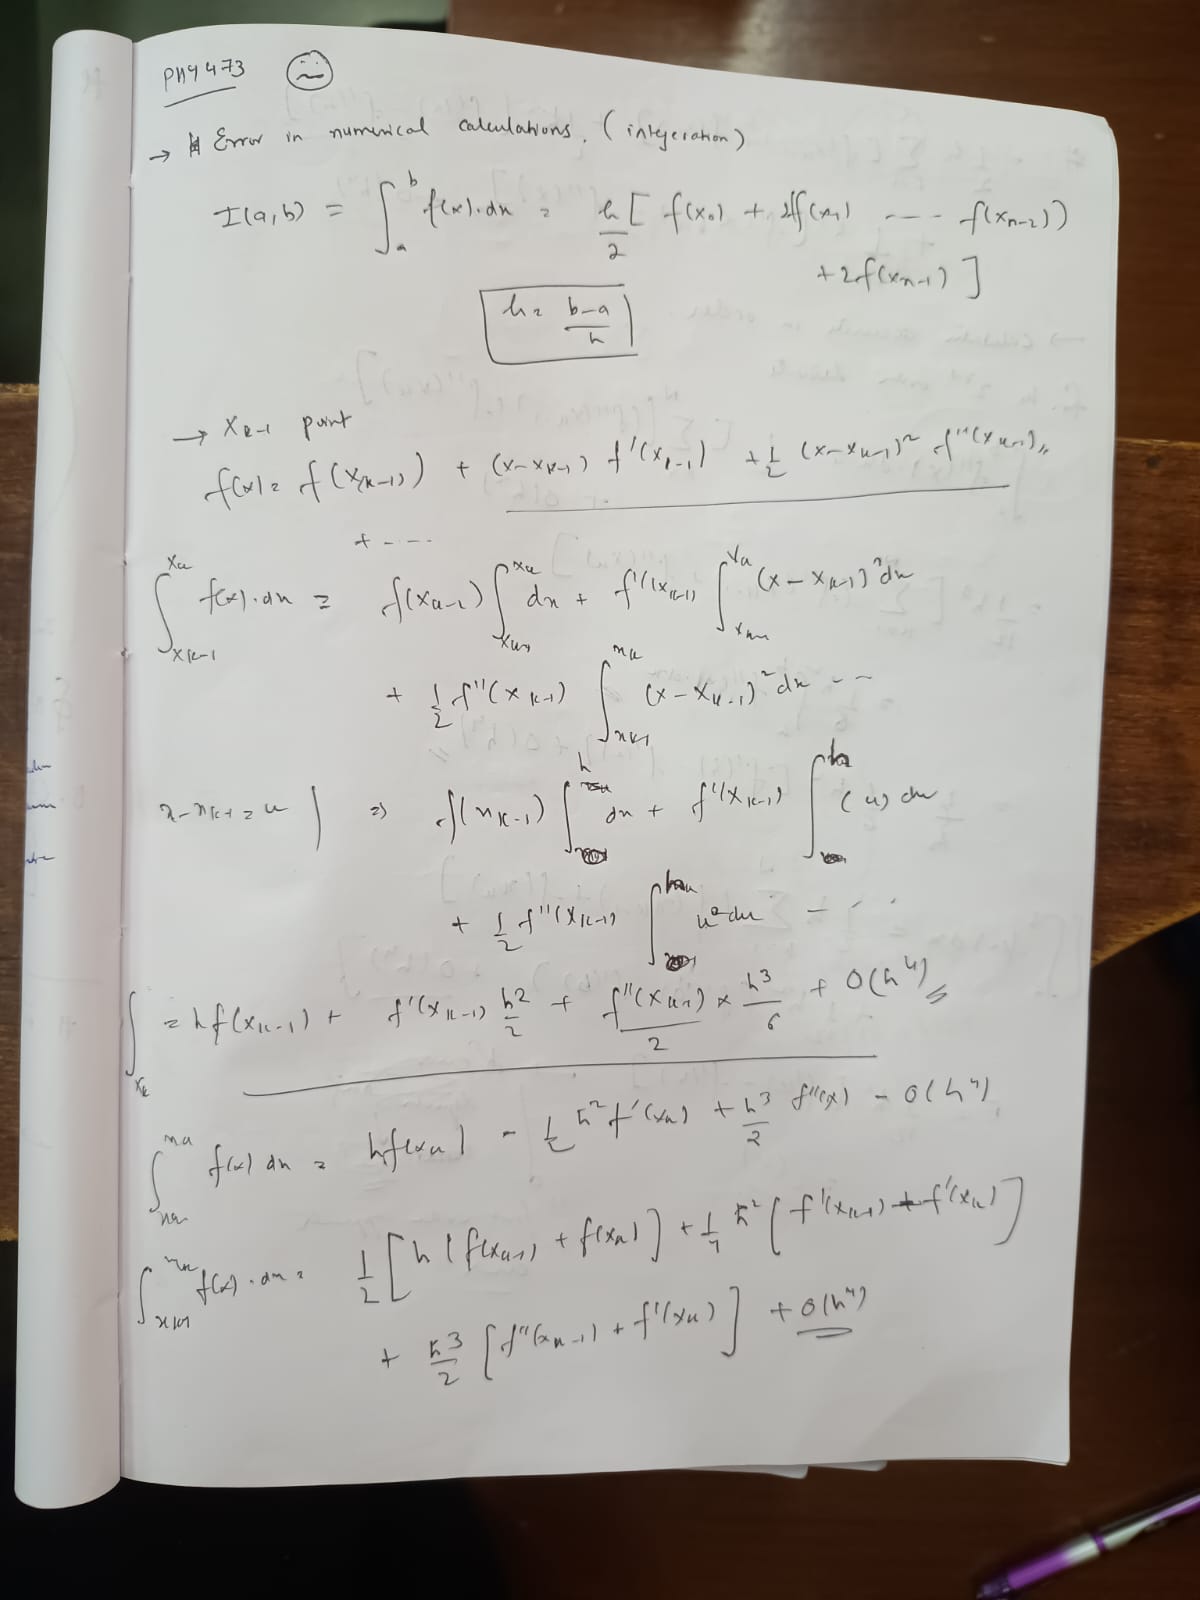 PHY473
→ Error in numerical calculations. (integeration)
I(a,b) = ∫_a^b f(x).dx = h/2 [ f(x₀) + 2f(x₁) ---- f(x_{n-2})
+ 2f(x_{n-1}) ]
h = b-a/n
→ x_{k-1} point
f(x) = f(x_{k-1}) + (x-x_{k-1}) f'(x_{k-1}) + 1/2 (x-x_{k-1})² f''(x_{k-1})
+ ----
∫_{x_{k-1}}^{x_k} f(x).dx = f(x_{k-1}) ∫_{x_{k-1}}^{x_k} dx + f'(x_{k-1}) ∫_{x_{k-1}}^{x_k} (x-x_{k-1}) dx
+ 1/2 f''(x_{k-1}) ∫_{x_{k-1}}^{x_k} (x-x_{k-1})² dx --
x-x_{k-1} = u | ⇒ f(x_{k-1}) ∫^h du + f'(x_{k-1}) ∫^h (u) du
+ 1/2 f''(x_{k-1}) ∫^h u² du - - -
∫_{x_k} = h f(x_{k-1}) + f'(x_{k-1}) h²/2 + f''(x_{k-1})/2 × h³/6 + O(h⁴)
∫_{x_k}^{x_k} f(x) dx = h f(x_k) - 1/2 h² f'(x_k) + h³/2 f''(x) - O(h⁴)
∫_{x_{k-1}}^{x_k} f(x).dx = 1/2 [ h ( f(x_{k-1}) + f(x_k) ] + 1/4 h² [ f'(x_{k-1}) + f'(x_k) ]
+ h³/2 [ f''(x_{k-1}) + f'(x_k) ] + O(h⁴)